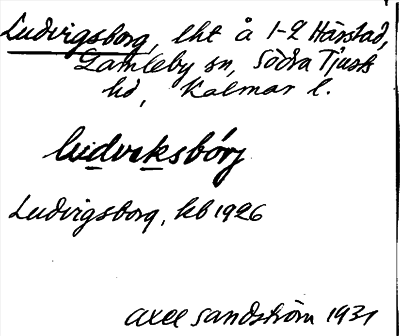 Ludvigsborg, lht å 1-2 Hårstad,
Gamleby sn, Södra Tjust
hd, Kalmar l.
ludvəksbórj
Ludvigsborg, kb 1926
Axel Sandström 1931